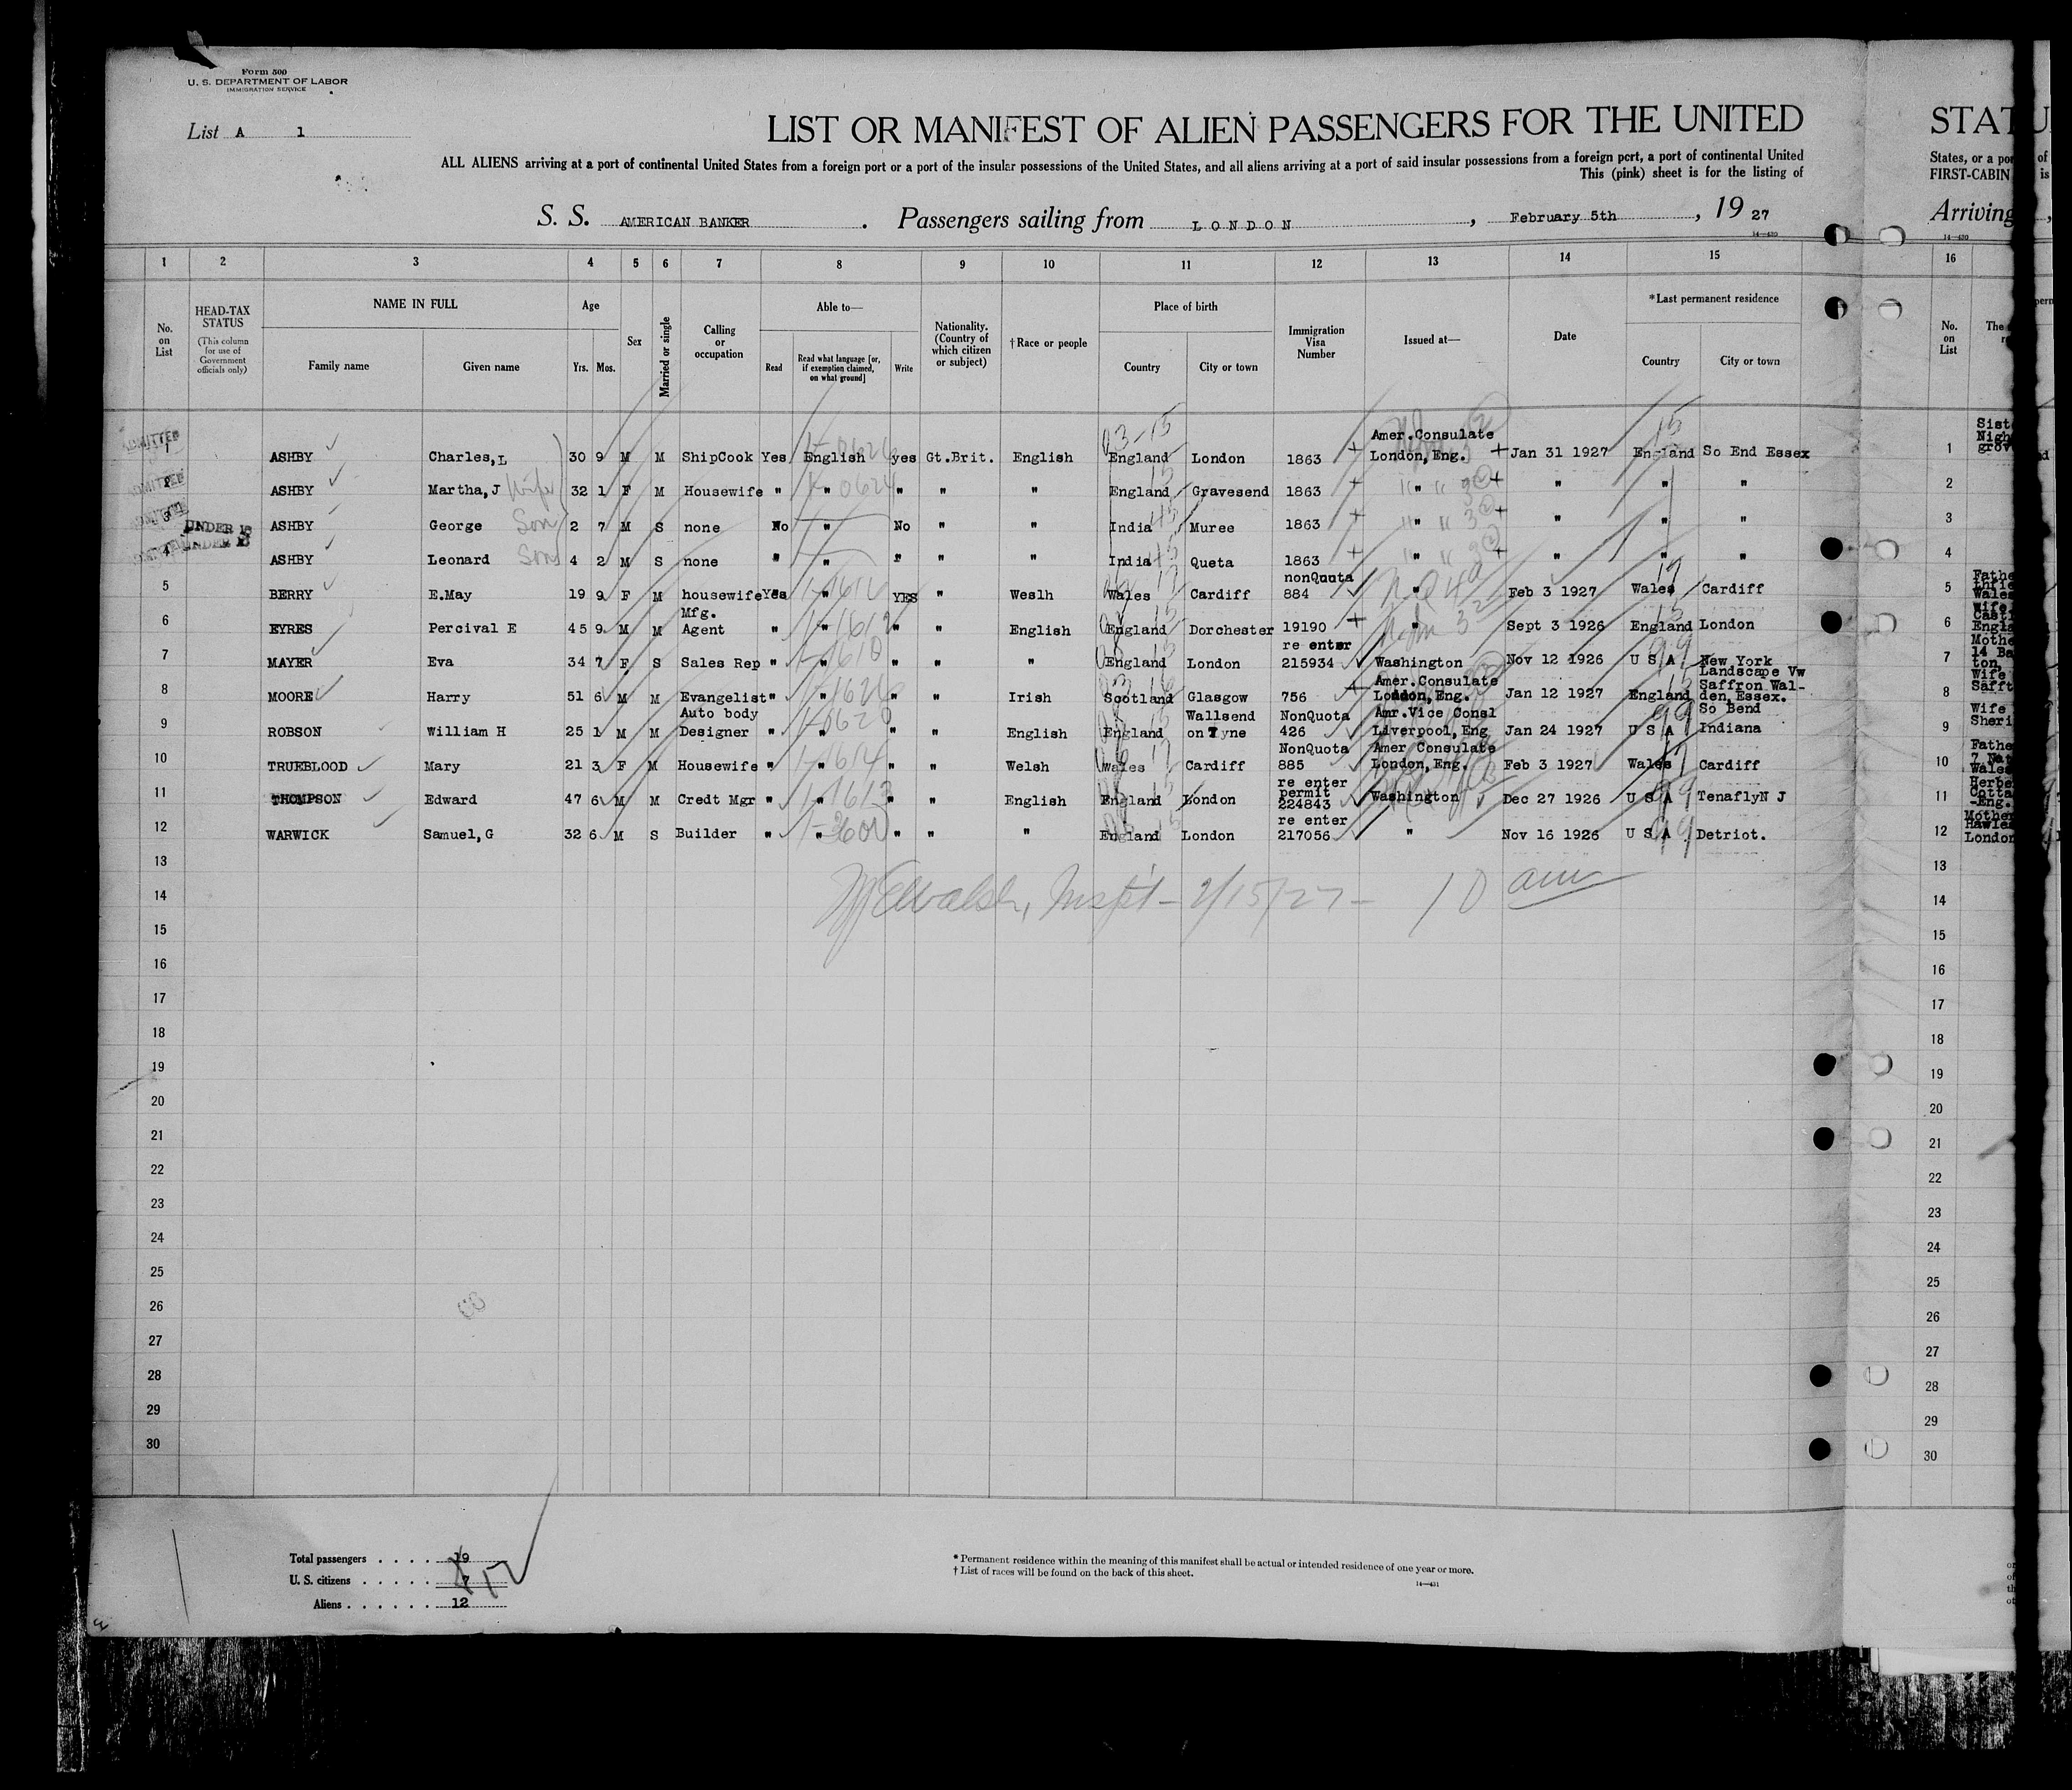 Form 500
U. S. DEPARTMENT OF LABOR
IMMIGRATION SERVICE
List A 1
LIST OR MANIFEST OF ALIEN PASSENGERS FOR THE UNITED
STAT
ALL ALIENS arriving at a port of continental United States from a foreign port or a port of the insular possessions of the United States, and all aliens arriving at a port of said insular possessions from a foreign port, a port of continental United
States, or a por
This (pink) sheet is for the listing of
FIRST-CABIN
S. S. AMERICAN BANKER . Passengers sailing from LONDON , February 5th , 19 27
Arriving
1 2 3 4 5 6 7 8 9 10 11 12 13 14 15 16
No. on List
HEAD-TAX STATUS
(This column for use of Government officials only)
NAME IN FULL
Family name Given name
Age
Yrs. Mos.
Sex
Married or single
Calling or occupation
Able to—
Read
Read what language [or, if exemption claimed, on what ground]
Write
Nationality. (Country of which citizen or subject)
†Race or people
Place of birth
Country City or town
Immigration Visa Number
Issued at—
Date
*Last permanent residence
Country City or town
No. on List
ADMITTED 1 ASHBY Charles,L 30 9 M M ShipCook Yes English yes Gt.Brit. English England London 1863 Amer.Consulate London,Eng. Jan 31 1927 England So End Essex 1
ADMITTED 2 ASHBY Martha,J Wife 32 1 F M Housewife " " " " " England Gravesend 1863 " " " " 2
3 UNDER 16 ASHBY George Son 2 7 M S none No " No " " India Muree 1863 " " " " 3
4 UNDER 16 ASHBY Leonard Son 4 2 M S none " " " " " India Queta 1863 " " " " 4
5 BERRY E.May 19 9 F M housewife Yes " YES " Weslh Wales Cardiff nonQuota 884 " Feb 3 1927 Wales Cardiff 5
6 EYRES Percival E 45 9 M M Mfg. Agent " " " " English England Dorchester 19190 " Sept 3 1926 England London 6
7 MAYER Eva 34 7 F S Sales Rep " " " " " England London re enter 215934 Washington Nov 12 1926 U S A New York 7
8 MOORE Harry 51 6 M M Evangelist " " " " Irish Scotland Glasgow 756 Amer.Consulate London,Eng. Jan 12 1927 England Landscape Vw Saffron Wal-den,Essex. 8
9 ROBSON William H 25 1 M M Auto body Designer " " " " English England Wallsend on Tyne NonQuota 426 Amr.Vice Consl Liverpool,Eng Jan 24 1927 U S A So Bend Indiana 9
10 TRUEBLOOD Mary 21 3 F M Housewife " " " " Welsh Wales Cardiff NonQuota 885 Amer Consulate London,Eng. Feb 3 1927 Wales Cardiff 10
11 THOMPSON Edward 47 6 M M Credt Mgr " " " " English England London re enter permit 224843 Washington Dec 27 1926 U S A TenaflyN J 11
12 WARWICK Samuel,G 32 6 M S Builder " " " " " England London re enter 217056 " Nov 16 1926 U S A Detriot. 12
13 13
14 Walsh, Inspt - 2/15/27 - 10 am 14
15 15
16 16
17 17
18 18
19 19
20 20
21 21
22 22
23 23
24 24
25 25
26 26
27 27
28 28
29 29
30 30
Total passengers . . . . 19
U. S. citizens . . . . . 7
Aliens . . . . . . 12
12
* Permanent residence within the meaning of this manifest shall be actual or intended residence of one year or more.
† List of races will be found on the back of this sheet.
14—431